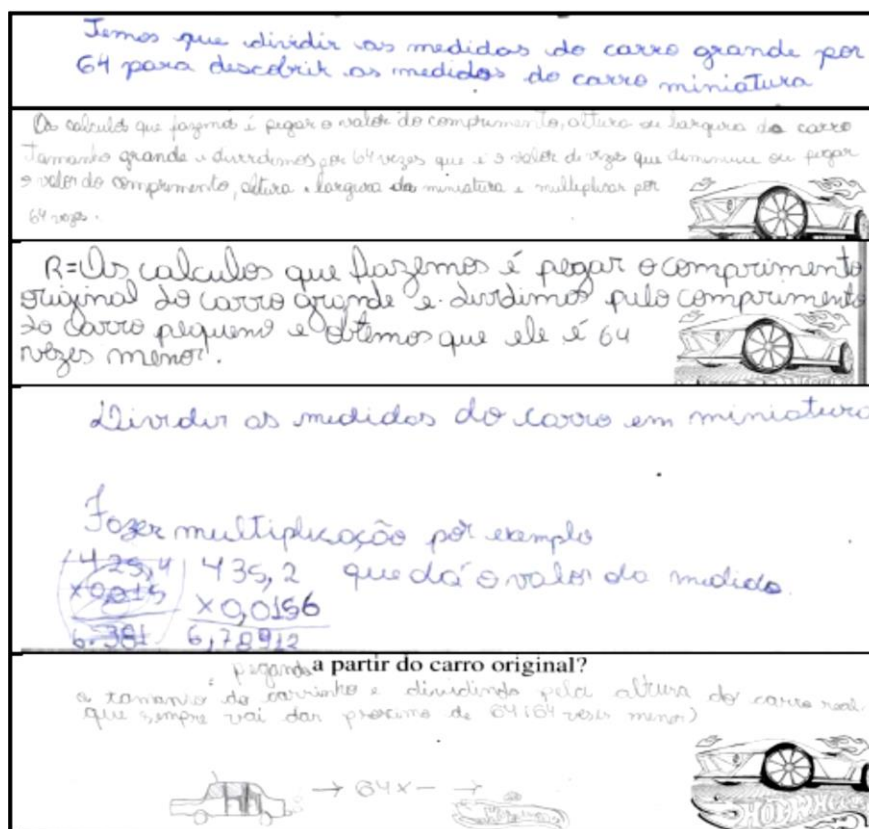 Temos que dividir as medidas do carro grande por
64 para descobrir as medidas do carro miniatura
Os calculos que fazemos é pegar o valor do comprimento, altura ou largura do carro
tamanho grande e dividimos por 64 vezes que é o valor de vezes que diminuiu ou pegar
o valor do comprimento, altura e largura da miniatura e multiplicar por
64 vezes.
R= Os calculos que fazemos é pegar o comprimento
original do carro grande e dividimos pelo comprimento
do carro pequeno e obtemos que ele é 64
vezes menor.
Dividir as medidas do carro em miniatura
Fazer multiplicação por exemplo
425,4 435,2 que dá o valor da medida.
x0,015 x0,0156
6.381 6,78912
pegando a partir do carro original?
o tamanho do carrinho e dividindo pela altura do carro real
que sempre vai dar proximo de 64 (64 vezes menor)
→ 64x - →
HOT WHEELS